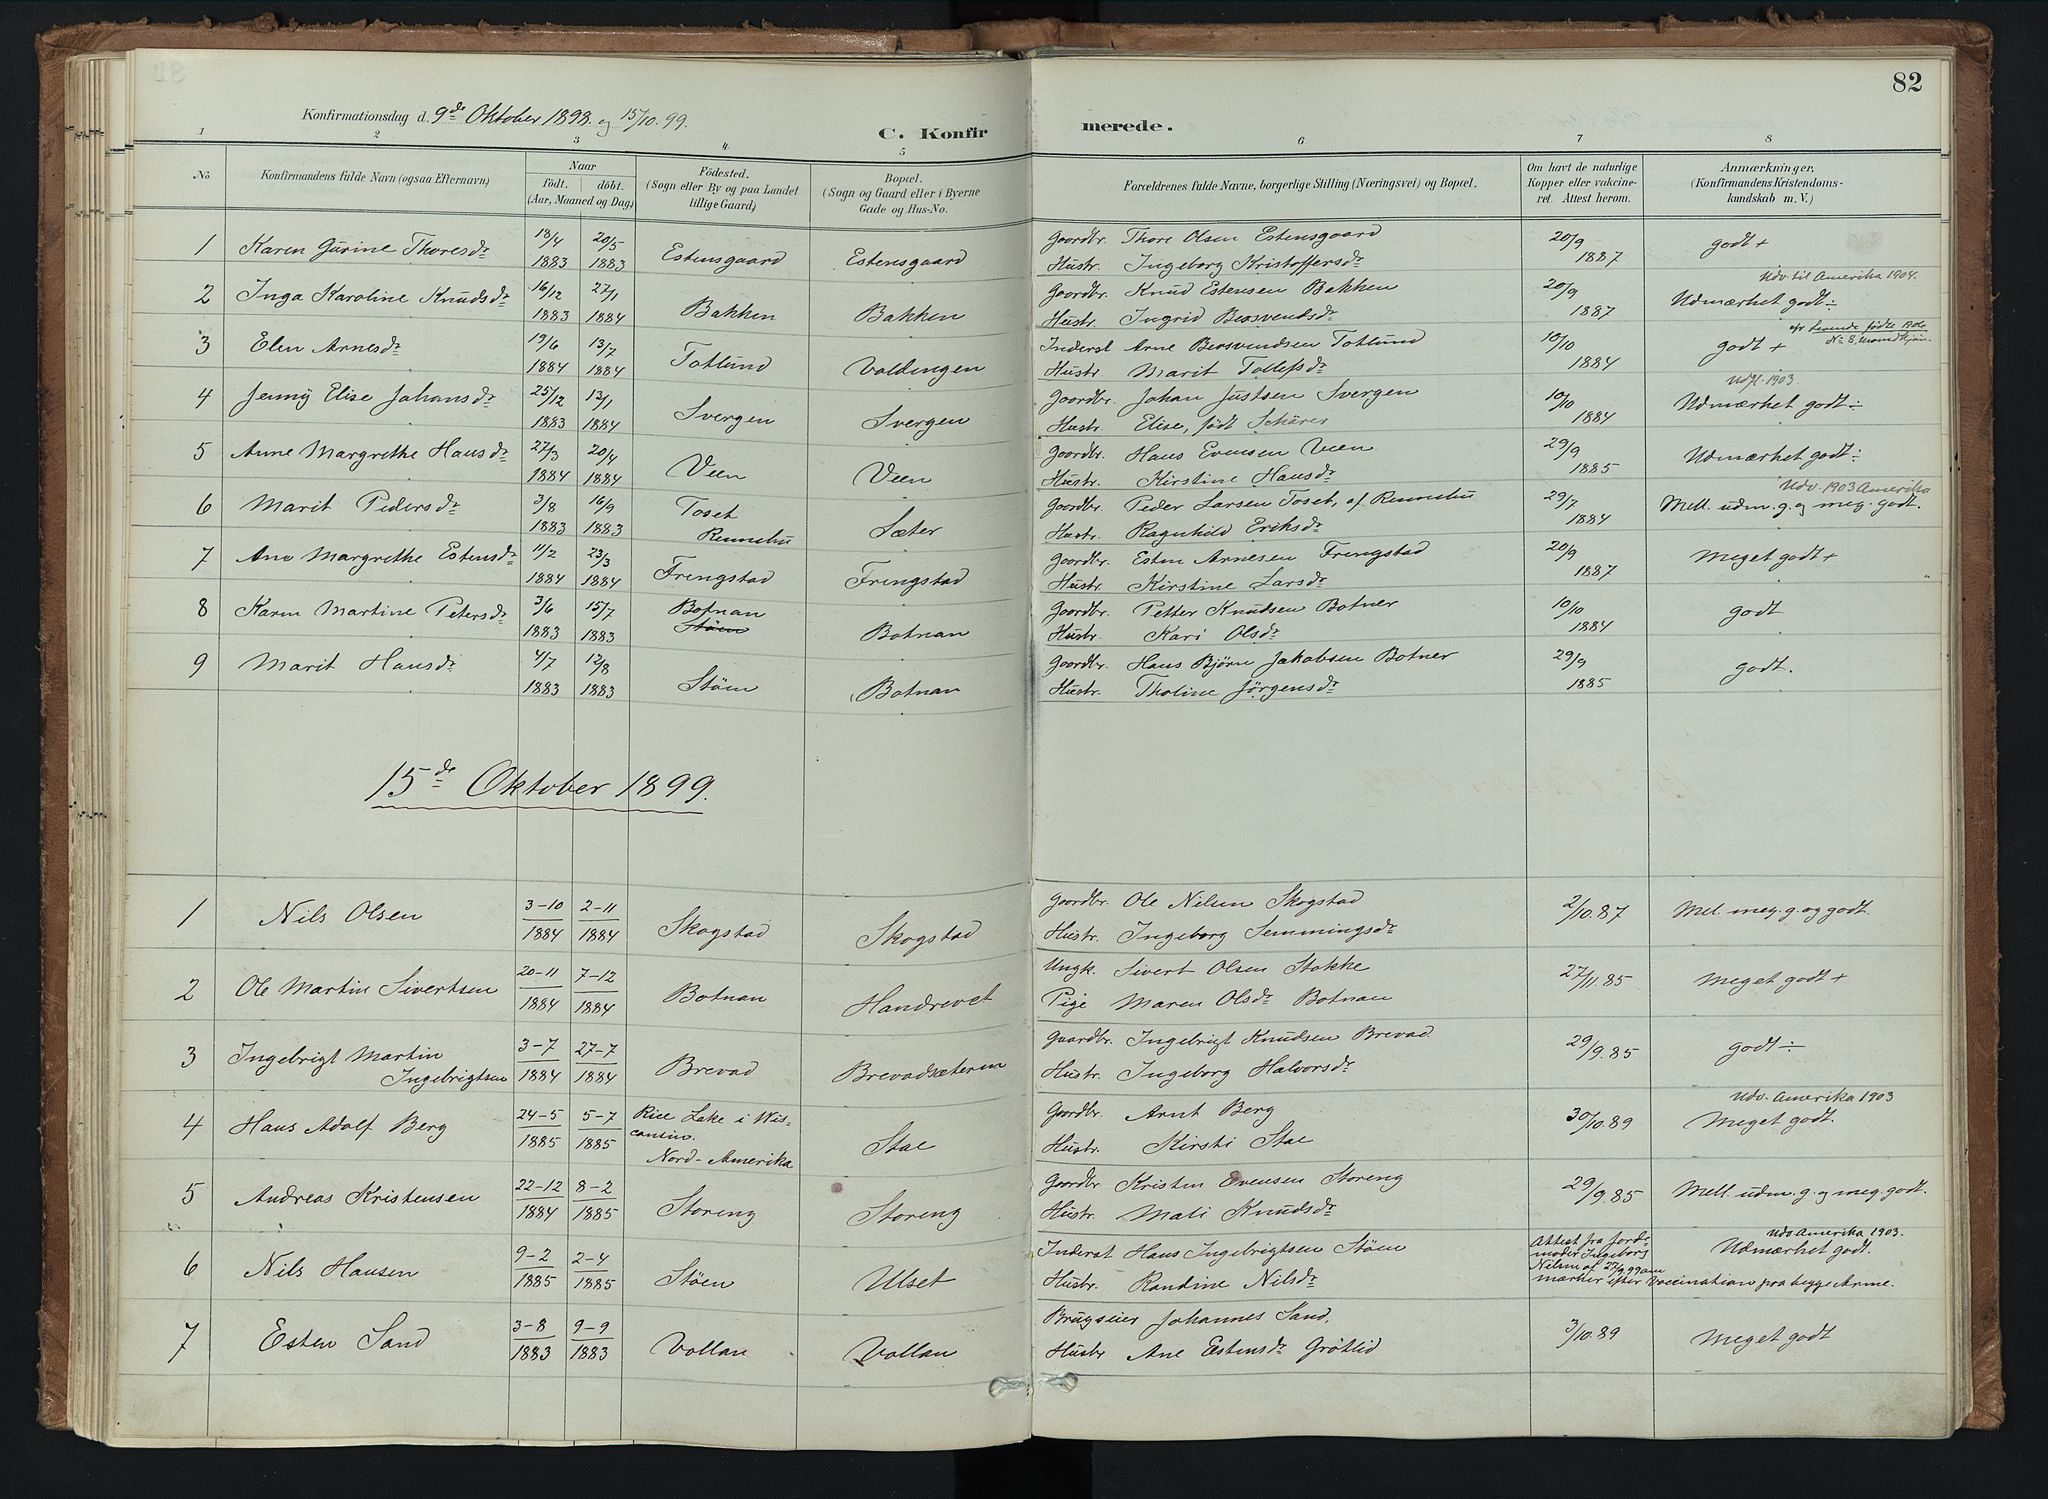 82
Konfirmationsdag d. 9de Oktober 1898. og 15/10. 99.
C. Konfirmerede.
1 2 3 4 5 6 7 8
No. Konfirmandens fulde Navn (ogsaa Efternavn) Naar født. døbt. (Aar, Maaned og Dag) Fødested. (Sogn eller By og paa Landet tillige Gaard) Bopæl. (Sogn og Gaard eller i Byerne Gade og Hus-No. Forældrenes fulde Navne, borgerlige Stilling (Næringsvei) og Bopæl. Om havt de naturlige Kopper eller vakcineret. Attest herom. Anmærkninger. (Konfirmandens Kristendomskundskab m. V.)
1 Karen Gurine Thoresdr 13/4 1883 20/5 1883 Estensgaard Estensgaard Gaardbr. Thore Olsen Estensgaard
Hustr. Ingeborg Kristoffersdr 20/9 1887 godt +
2 Inga Karoline Knudsdr 16/12 1883 27/1 1884 Bakken Bakken Gaardbr. Knud Estensen Bakken
Hustr. Ingrid Bersvendsdr 20/9 1887 Udv. til Amerika 1904. Udmærket godt ÷
3 Elen Arnesdr 19/6 1884 13/7 1884 Totlund Voldingen Inderst Arne Bersvendsen Totlund
Hustr. Marit Tollefsdr 10/10 1884 godt + levende fødte
4 Jenny Elise Johansdr 25/12 1883 13/1 1884 Svergen Svergen Gaardbr. Johan Justsen Svergen
Hustr. Elise, født Schärer 10/10 1884 Udfl. 1903. Udmærket godt ÷
5 Anne Margrethe Hansdr 27/3 1884 20/4 1884 Veen Veen Gaardbr. Hans Evensen Veen
Hustr. Kirstine Hansdr 29/9 1885 Udmærket godt ÷
6 Marit Pedersdr 3/8 1883 16/9 1883 Toset Rennebu Sæter Gaardbr. Peder Larsen Toset, af Rennebu
Hustr. Ragnhild Eriksdr 29/7 1884 Udv. 1903 Amerika Mell. udm. g. og meg. godt.
7 Ane Margrethe Estensdr 11/2 1884 23/3 1884 Frengstad Frengstad Gaardbr. Esten Arnesen Frengstad
Hustr. Kirstine Larsdr 20/9 1887 Meget godt +
8 Karen Martine Petersdr 3/6 1883 15/7 1883 Botnan Støen Botnan Gaardbr. Petter Knudsen Botner
Hustr. Kari Olsdr 10/10 1884 godt
9 Marit Hansdr 4/7 1883 12/8 1883 Støen Botnan Gaardbr. Hans Bjørn Jakobsen Botner
Hustr. Tholine Jørgensdr 29/9 1885 godt.
15de Oktober 1899.
1 Nils Olsen 3-10 1884 2-11 1884 Skogstad Skogstad Gaardbr. Ole Nilsen Skogstad
Hustr. Ingeborg Semmingsdr 2/10. 87 Mel. meg. g. og godt.
2 Ole Martin Sivertsen 20-11 1884 7-12 1884 Botnan Handrevet Ungk. Sivert Olsen Stokke
Pige Maren Olsdr Botnan 27/11. 85 Meget godt +
3 Ingebrigt Martin Ingebrigtsen 3-7 1884 27-7 1884 Brevad Brevadsæteren Gaardbr. Ingebrigt Knudsen Brevad
Hustr. Ingeborg Halvorsdr 29/9. 85 godt ÷
4 Hans Adolf Berg 24-5 1885 5-7 1885 Rice Lake i Wisconsin. Nord-Amerika Stae Gaardbr. Arnt Berg
Hustr. Kirsti Stae 30/10. 89 Udv. Amerika 1903 Meget godt.
5 Andreas Kristensen 22-12 1884 8-2 1885 Storeng Storeng Gaardbr. Kristen Evensen Storeng
Hustr. Mali Knudsdr 29/9. 85 Mell. udm. g. og meg. godt.
6 Nils Hansen 9-2 1885 2-4 1885 Støen Ulset Inderst Hans Ingebrigtsen Støen
Hustr. Randine Nilsdr Attest fra Jordmoder Ingebors Nilsen af 27/9. 99 om mærker efter Vaccination paa begge Arme. Udv Amerika 1903. Udmærket godt.
7 Esten Sand 3-8 1883 9-9 1883 Vollan Vollan Brugseier Johannes Sand.
Hustr Ane Estensdr Grøtlid 3/10. 89 Meget godt